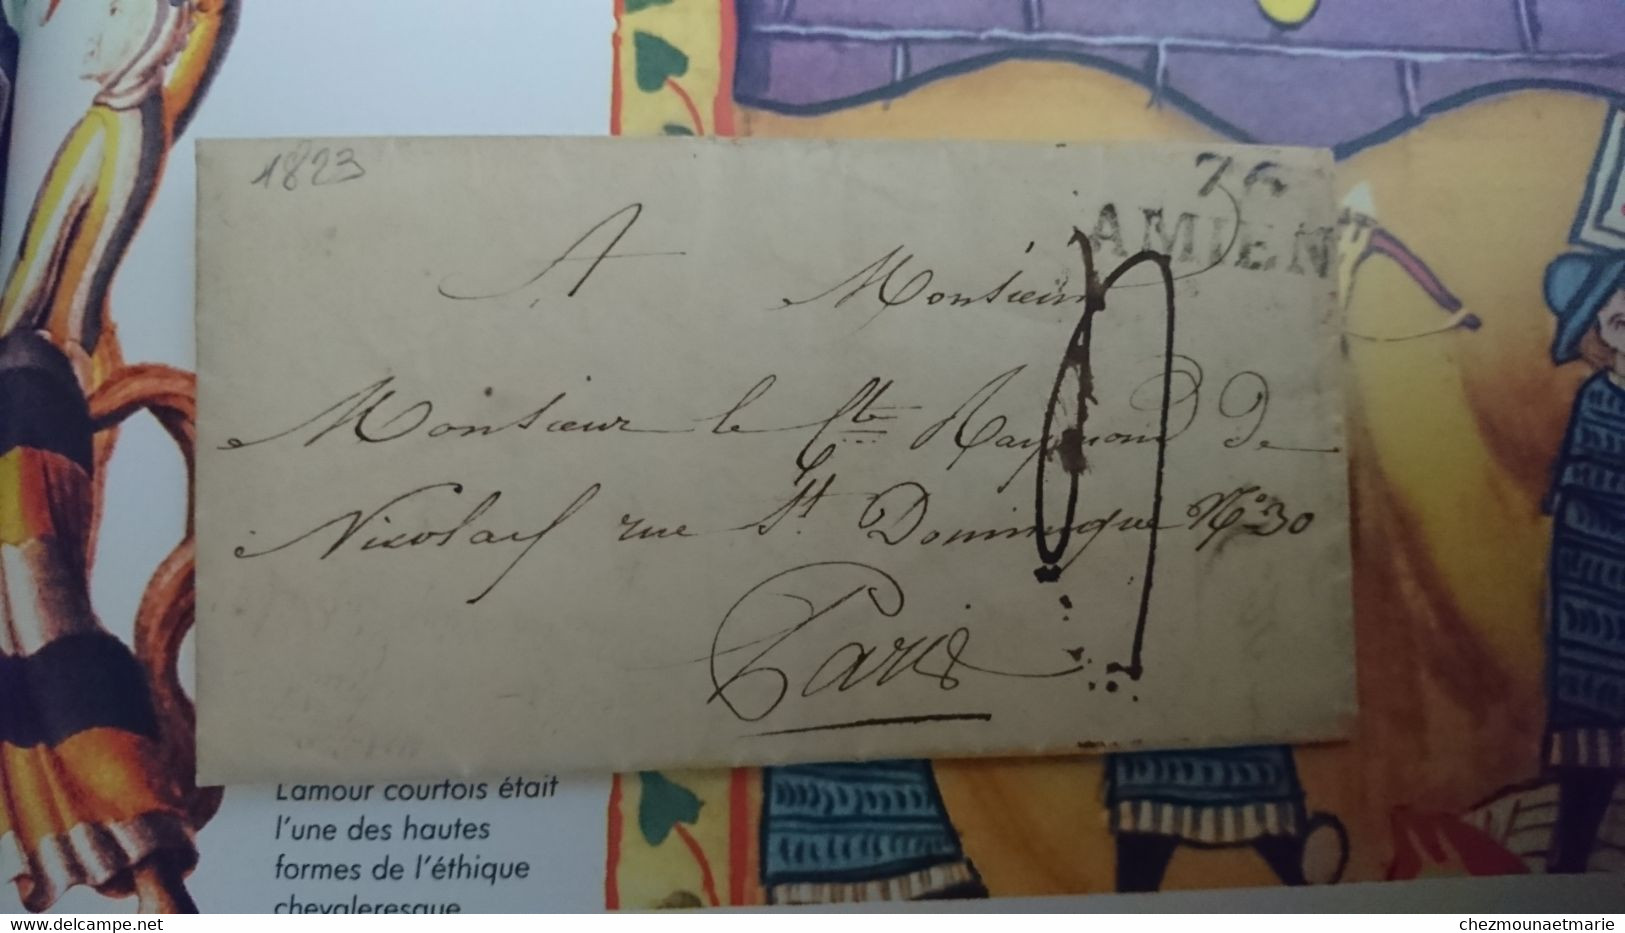 1823
76
AMIENS
A Monsieur
Monsieur le Cte Raymond de
Nicolaÿ rue St Dominique N° 30
Paris
L'amour courtois était
l'une des hautes
formes de l'éthique
chevaleresque
delcampe.net
chezmounaetmarie